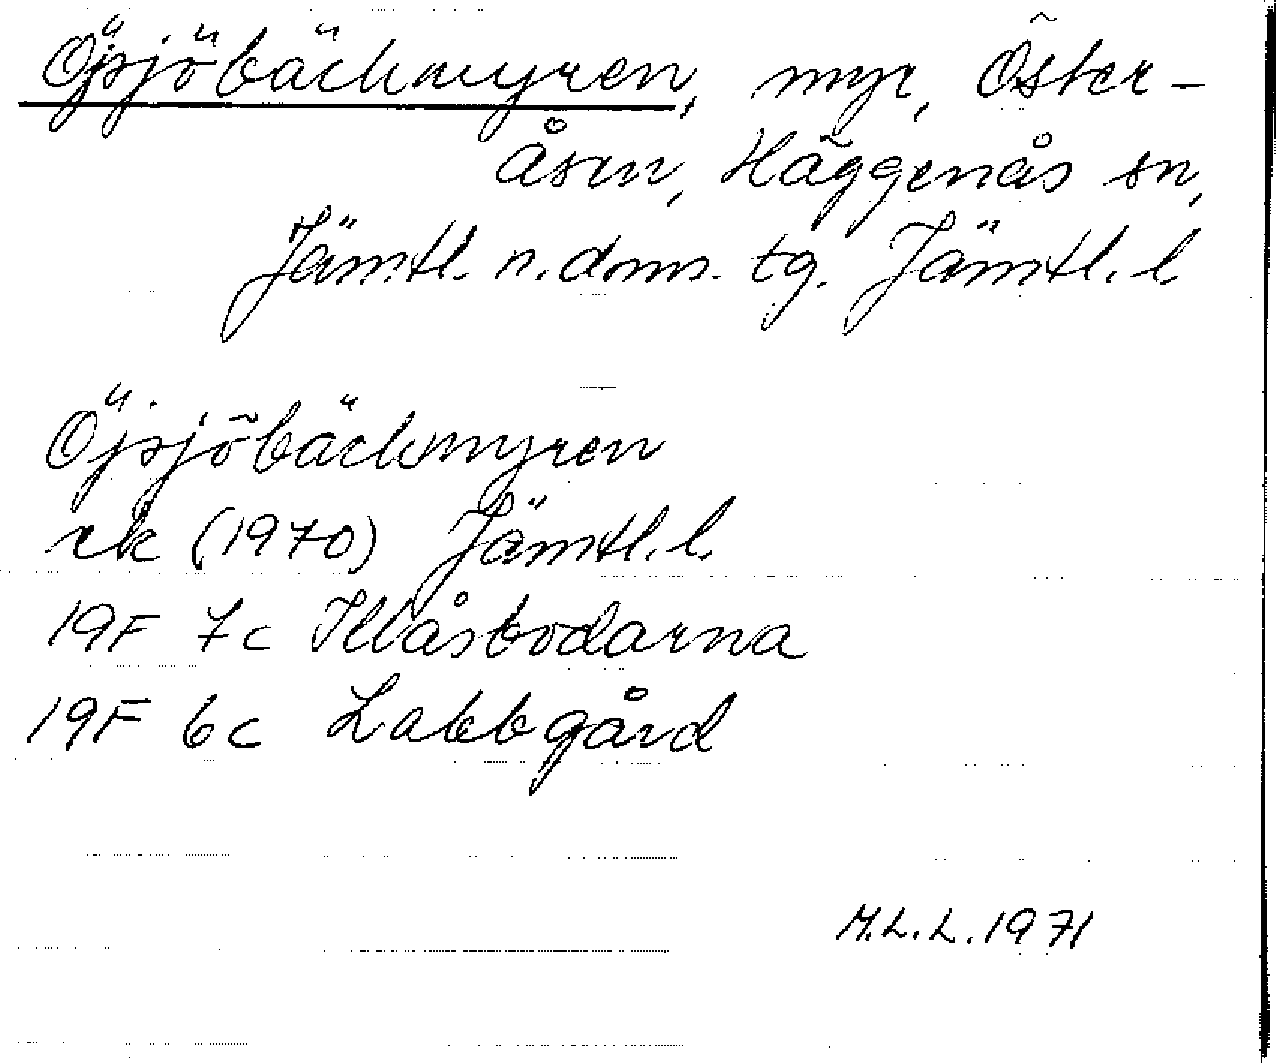 Öjsjöbäckmyren, myr, Öster-
åsen, Häggenås sn,
Jämtl. n. doms. tg. Jämtl. l
Öjsjöbäckmyren
rek (1970) Jämtl. l.
19F 7c Klåsbodarna
19F 6c Labbgård
M.L.L. 1971